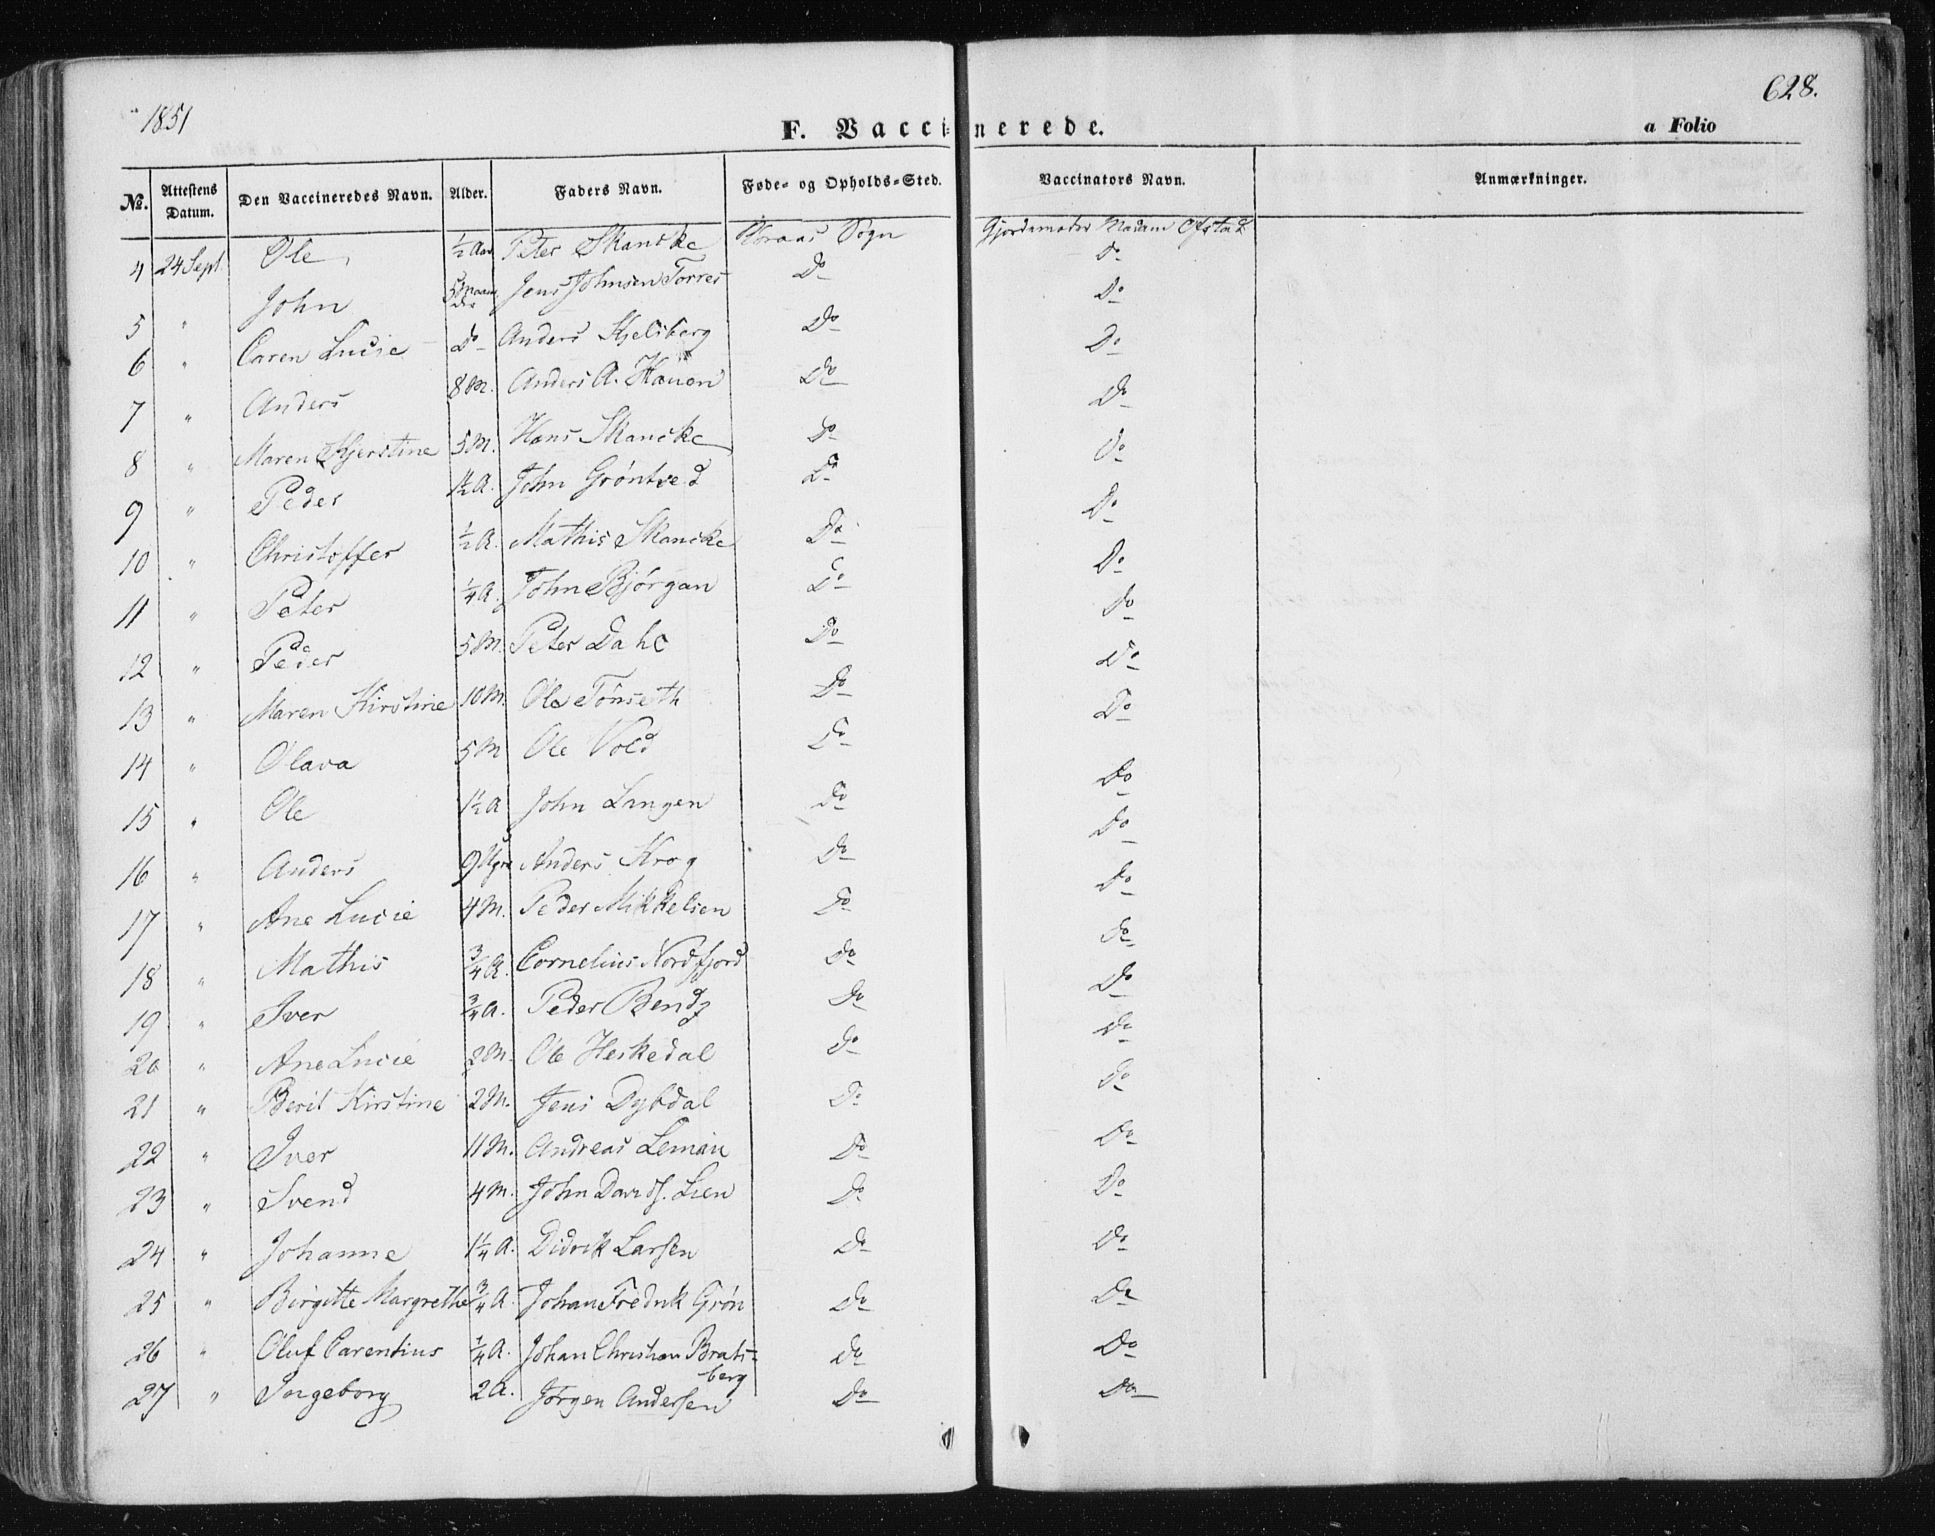 1851
628.
F. Vaccinerede.
a Folio
No. Attestens Datum. Den Vaccineredes Navn. Alder. Faders Navn. Føde- og Opholds-Sted. Vaccinators Navn. Anmærkninger.
4 24 Sept Ole ½ Aar Peter Skancke Røraas Sogn Gjordemoder Madam
5 " John 5 Jens Johnsen Torres Do Do
6 " Caren Lucie Do Anders Kjelsberg Do Do
7 " Anders 8 M. Anders A. Hauen Do Do
8 " Maren Kjerstine 5 M. Hans Skancke Do Do
9 " Peder 1½ A. John Grøntved Do Do
10 " Christoffer ½ A. Mathis Skancke Do Do
11 " Peter ¼ A. John Bjørgan Do Do
12 " Peder 5 M. Peter Dahl Do Do
13 " Maren Kirstine 10 M. Ole Tønseth Do Do
14 " Olava 5 M Ole Vold Do Do
15 " Ole 1½ A John Langen Do Do
16 " Anders 9 Ugr Anders Krog Do Do
17 " Ane Lucie 4 M. Peder Mikkelsen Do Do
18 " Mathis ¾ A. Cornelius Nordfjord Do Do
19 " Iver ¾ A. Peder Bendz Do Do
20 " Ane Lucie 2 M. Ole Heskedal Do Do
21 " Berit Kirstine 2 M. Jens Dybdal Do Do
22 " Iver 11 M. Andreas Leman Do Do
23 " Svend 4 M. John Davids. Lien Do Do
24 " Johanne 1¼ A. Didrik Larsen Do Do
25 " Birgitte Margrethe ¾ A. Johan Fredrik Grøn Do Do
26 " Oluf Carentius ¼ A. Johan Christian Brats= Do Do
berg
27 " Ingeborg 2 A. Jørgen Andersen Do Do